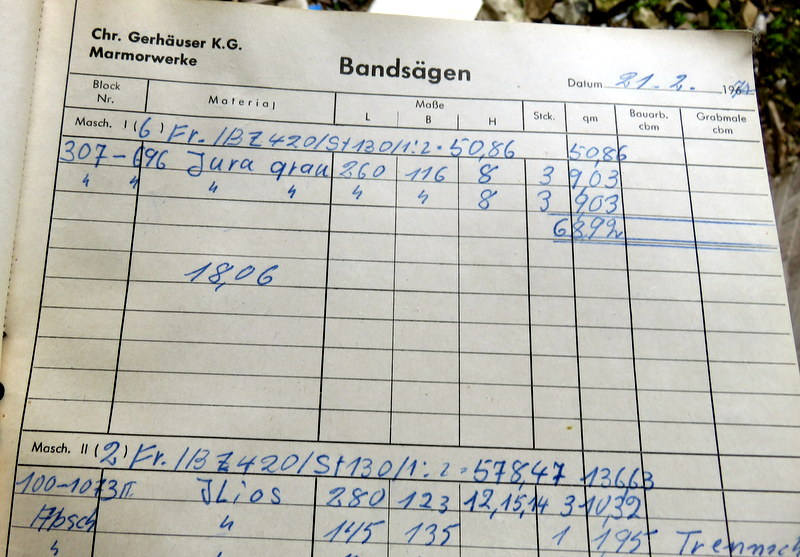 Chr. Gerhäuser K.G.
Marmorwerke
Bandsägen
Datum 21. 2. 196
Block Nr. Material Maße Stck. qm Bauarb. cbm Grabmale cbm
L B H
Masch. I (6) Fr. /BZ 420/St 130/1:2 = 50,86 50,86
307-696 Jura grau 260 116 8 3 9,03
" " " " " " 8 3 9,03
68,92
18,06
Masch. II (2) Fr. /BZ 420/St 130/1:2 = 578,47 136,63
100-1073 JLios 280 123 12,15,14 3 10,32
Absch " 145 135 1 1,95
"